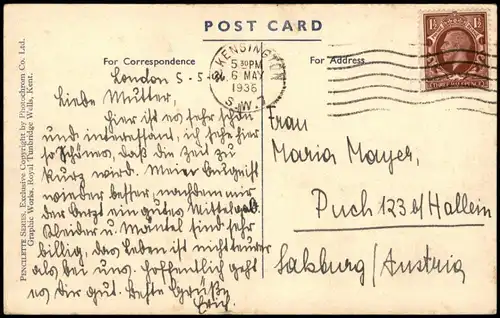 POST CARD
For Correspondence
For Address
S. KENSINGTON
5 30 PM
6 MAY
1936
S.W.7
1½
London 5-5-
Liebe Mutter,
Hier ist es sehr schön
und interessant, ich sehe hier
so Schönes, daß die Zeit zu
kurz wird. Meiner geht
wieder besser, nachdem mir
der Arzt ein gutes Mittel gab.
Kleider u. Mäntel sind sehr
billig, das Leben ist nicht teurer
als bei uns. Hoffentlich geht
es Dir gut. Beste Grüße
Erich.
Frau
Maria Mayer,
Puch 123 b/Hallein
Salzburg/Austria
PENCILETTE SERIES, Exclusive Copyright by Photochrom Co. Ltd.
Graphic Works, Royal Tunbridge Wells, Kent.